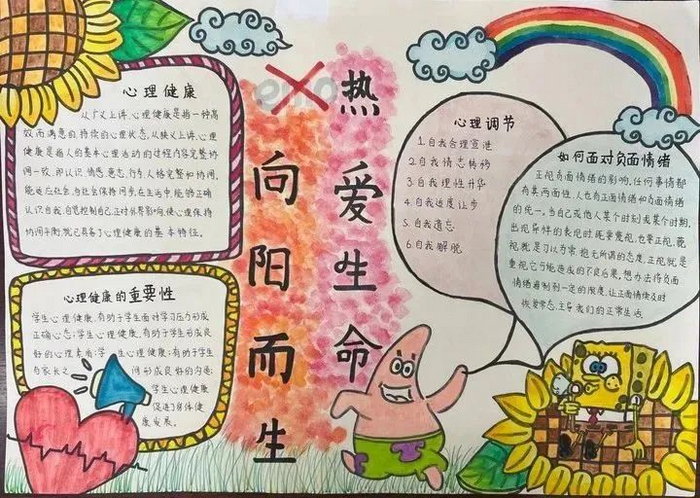 emo
热爱生命
向阳而生
心理健康
从广义上讲,心理健康是指一种高
效而满意的,持续的心理状态,从狭义上讲,心理
健康是指人的基本心理活动的过程内容完整协
调一致,即认识,情感,意志,行为,人格完整和协调,
能适应社会,与社会保持同步,在生活中,能够正确
认识自我,自觉控制自己,正对外界影响,使心理保持
协调平衡,就已具备了心理健康的基本特征。
心理健康的重要性
学生心理健康,有助于学生面对学习压力形成
正确心态;学生心理健康,有助于学生形成良
好的心理素质;学生心理健康:有助于学生
与家长之间形成良好的沟通;
学生心理健康
促进身体健
康发展。
心理调节
1.自我合理宣泄
2.自我情志转移
3.自我理性升华
4.自我适度让步
5.自我遗忘
6.自我解脱
如何面对负面情绪
正视负面情绪的影响,任何事情都
有其两面性,人也有正面情绪和负面情绪
的统一,当自己或他人某个时刻或某个时期,
出现异样的表现时,既要蔑视,也要正视,蔑
视就是习以为常,抱无所谓的态度,正视就是
重视它可能造成的不良后果,想办法将负面
情绪遏制到一定的限度,让正面情绪及时
恢复常态,主导我们的正常生活